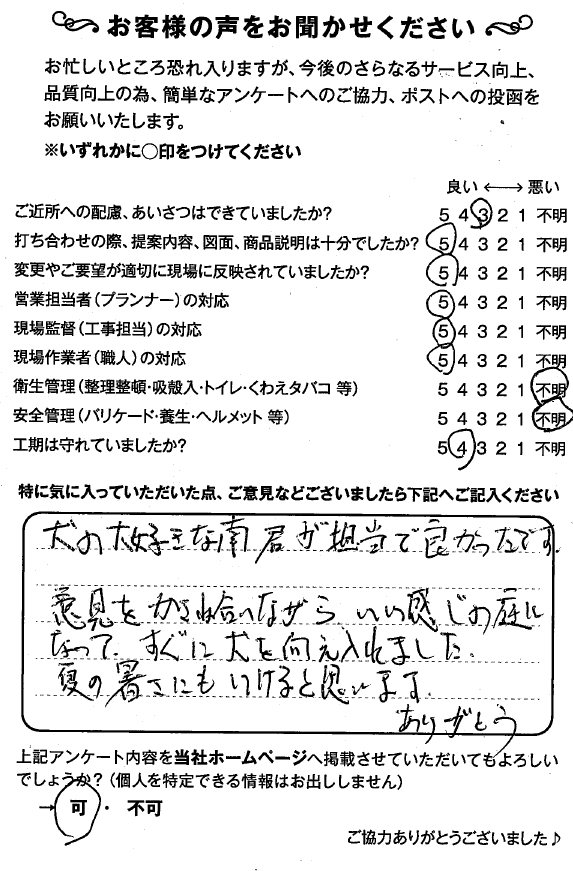 お客様の声をお聞かせください
お忙しいところ恐れ入りますが、今後のさらなるサービス向上、
品質向上の為、簡単なアンケートへのご協力、ポストへの投函を
お願いいたします。
※いずれかに〇印をつけてください
良い ⟷ 悪い
ご近所への配慮、あいさつはできていましたか? 5 4 3 2 1 不明
打ち合わせの際、提案内容、図面、商品説明は十分でしたか? 5 4 3 2 1 不明
変更やご要望が適切に現場に反映されていましたか? 5 4 3 2 1 不明
営業担当者(プランナー)の対応 5 4 3 2 1 不明
現場監督(工事担当)の対応 5 4 3 2 1 不明
現場作業者(職人)の対応 5 4 3 2 1 不明
衛生管理(整理整頓・吸殻入・トイレ・くわえタバコ 等) 5 4 3 2 1 不明
安全管理(バリケード・養生・ヘルメット 等) 5 4 3 2 1 不明
工期は守れていましたか? 5 4 3 2 1 不明
特に気に入っていただいた点、ご意見などございましたら下記へご記入ください
犬の大好きな南君が担当で良かったです
意見をかさね合いながら、いい感じの庭に
なって、すぐに犬を向え入れました。
夏の暑さにもいけると思います。
ありがとう
上記アンケート内容を当社ホームページへ掲載させていただいてもよろしい
でしょうか?(個人を特定できる情報はお出ししません)
→ 可 ・ 不可
ご協力ありがとうございました♪